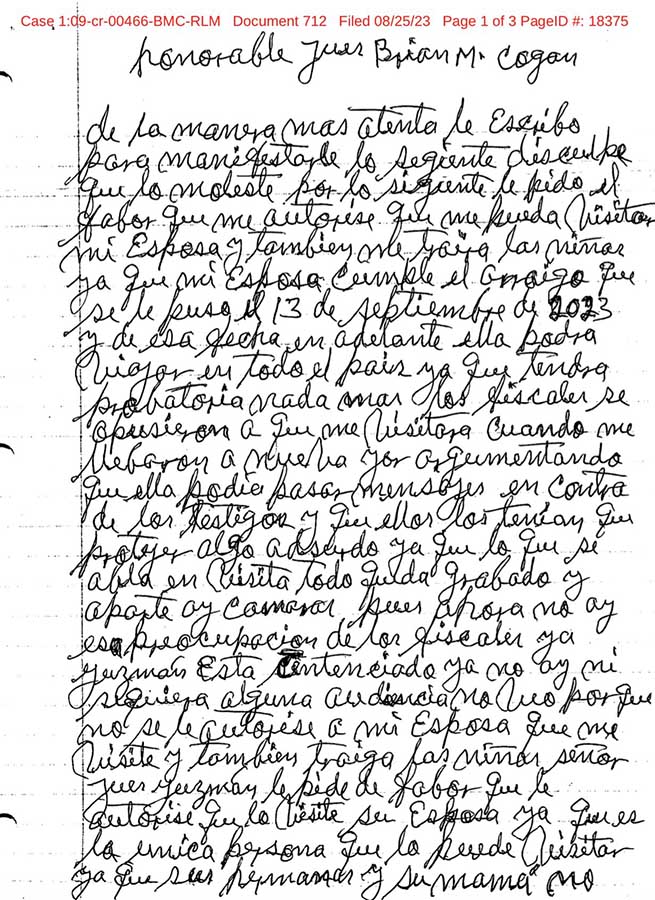 Case 1:09-cr-00466-BMC-RLM Document 712 Filed 08/25/23 Page 1 of 3 PageID #: 18375
honorable Jues Brian M. Cogan
de la manera mas atenta le Escribo
para manifestarle lo segiente disculpe
que lo moleste por lo sigiente le pido el
fabor que me autorise que me pueda Visitar
mi Esposa y tambien me traiga las niñas
ya que mi Esposa Cumple el arraigo que
se le puso el 13 de septiembre de 2023
y de esa fecha en adelante ella podra
Viajar en todo el pais ya que tendra
probatoria nada mas los fiscales se
opusieron a que me Visitara Cuando me
llebaron a nueba yor argumentando
que ella podia pasar mensajes en contra
de los testigos y que ellos los tenian que
protejer algo adsurdo ya que lo que se
abla en Visita todo queda grabado y
aparte ay camaras pues ahora no ay
esa preocupacion de los fiscales ya
guzman Esta Sentenciado ya no ay ni
siquiera alguna audiencia no Veo por que
no se le autorise a mi Esposa que me
Visite y tambien traiga las niñas señor
jues guzman le pide de fabor que le
autorise que lo Visite su Esposa ya que es
la unica persona que lo puede Visitar
ya que sus hermanas y su mamá no